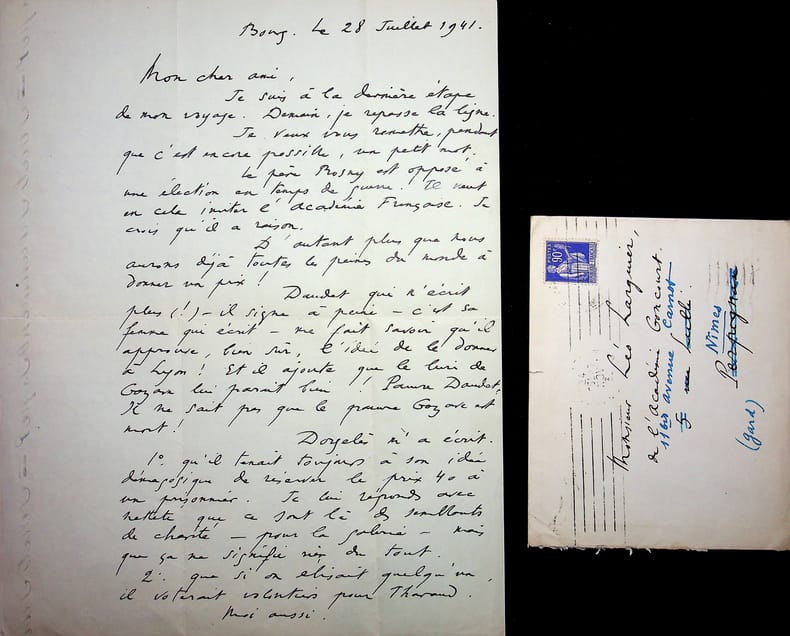 Bourg. Le 28 Juillet 1941.
Mon cher ami,
Je suis à la dernière étape
de mon voyage. Demain, je repasse la ligne.
Je veux vous remettre, pendant
que c'est encore possible, un petit mot.
Le père Rosny est opposé à
une élection en temps de guerre. Il veut
en cela imiter l'Académie Française. Je
crois qu'il a raison.
D'autant plus que nous
aurons déjà toutes les peines du monde à
donner un prix !
Daudet qui n'écrit
plus (!) – il signe à peine – c'est sa
femme qui écrit – me fait savoir qu'il
approuve, bien sûr, l'idée de le donner
à Lyon ! Et il ajoute que le livre de
lui parait bien ! Pauvre Daudet,
Il ne sait pas que le pauvre est
mort !
Dorgelès m'a écrit.
1º. qu'il tenait toujours à son idée
démagogique de réserver le prix 40 à
un prisonnier. Je lui réponds avec
netteté que ce sont là des
de charité – pour la galerie – mais
que ça ne signifie rien du tout.
2º. que si on élisait quelqu'un,
il voterait volontiers pour Tharaud.
Moi aussi.
POSTES
90c
Monsieur Léo Larguier,
de l'Académie Goncourt.
11 avenue Carnot
Nîmes
Perpignan
(Gard)